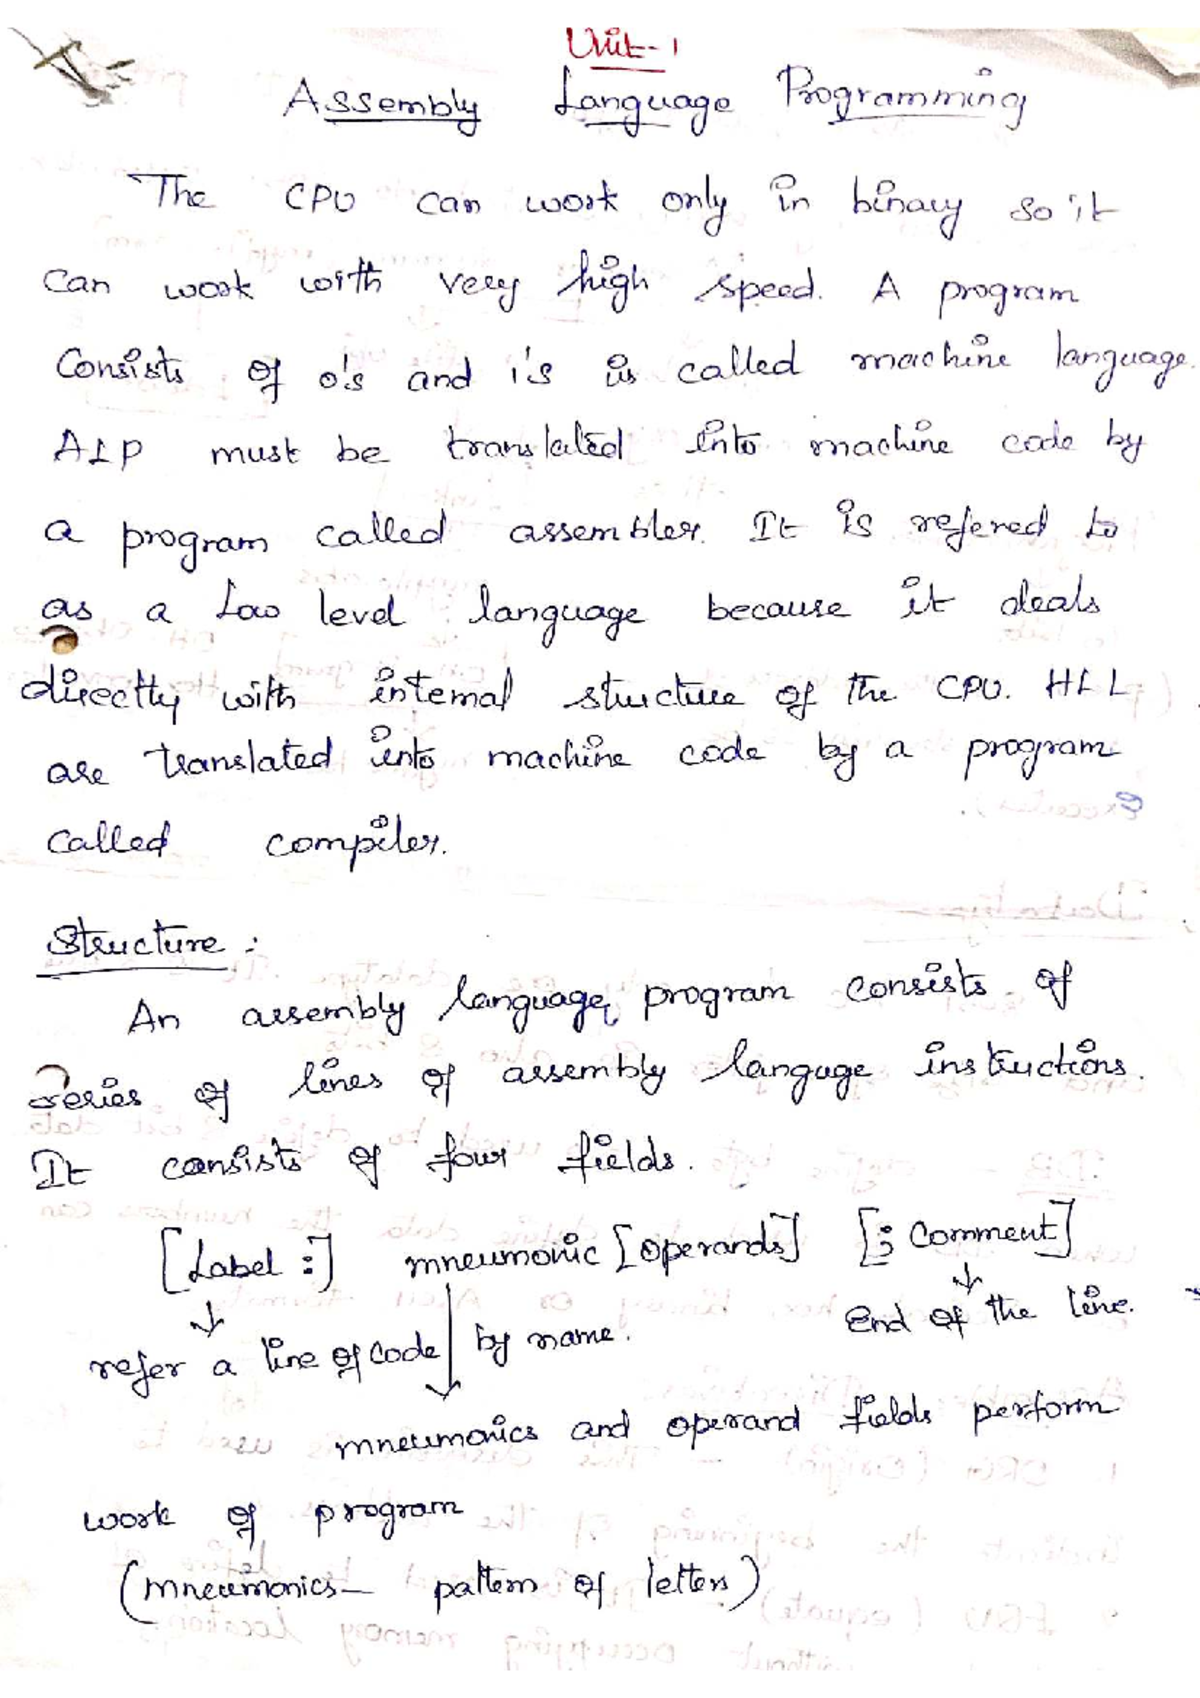 Unit-1
Assembly Language Programming
The CPU can work only in binary so it
can work with very high speed. A program
Consists of 0's and 1's is called machine language.
ALP must be translated into machine code by
a program called assembler. It is refered to
as a Low level language because it deals
directly with internal structure of the CPU. HLL
are translated into machine code by a program
called compiler.
Structure :
An assembly language program consists of
series of lines of assembly languge instructions.
It consists of four fields.
[Label :] mneumonic [operands] [; Comment]
refer a line of code by name. End of the line.
mneumonics and operand fields perform
work of program
(mneumonics - pattern of letters)